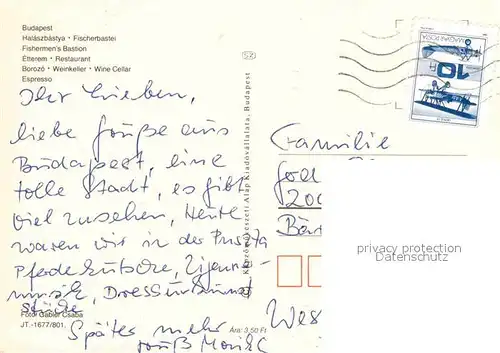 Budapest
Halászbástya • Fischerbastei
Fishermen's Bastion
Étterem • Restaurant
Borozó • Weinkeller • Wine Cellar
Espresso
Ihr Lieben,
liebe Grüße aus
Budapest, eine
tolle Stadt, es gibt
viel zusehen, Heute
waren wir in der Pussta
Pferdekutsche, Zigeuner-
musik, Dressurkunst
Fotó: Gábler Csaba
JT.-1677/801.
Ára: 3,50 Ft
Später mehr
Gruß
Képzőművészeti Alap Kiadóvállalata, Budapest
MAGYAR POSTA
10 Ft
Familie
200
privacy protection
Datenschutz